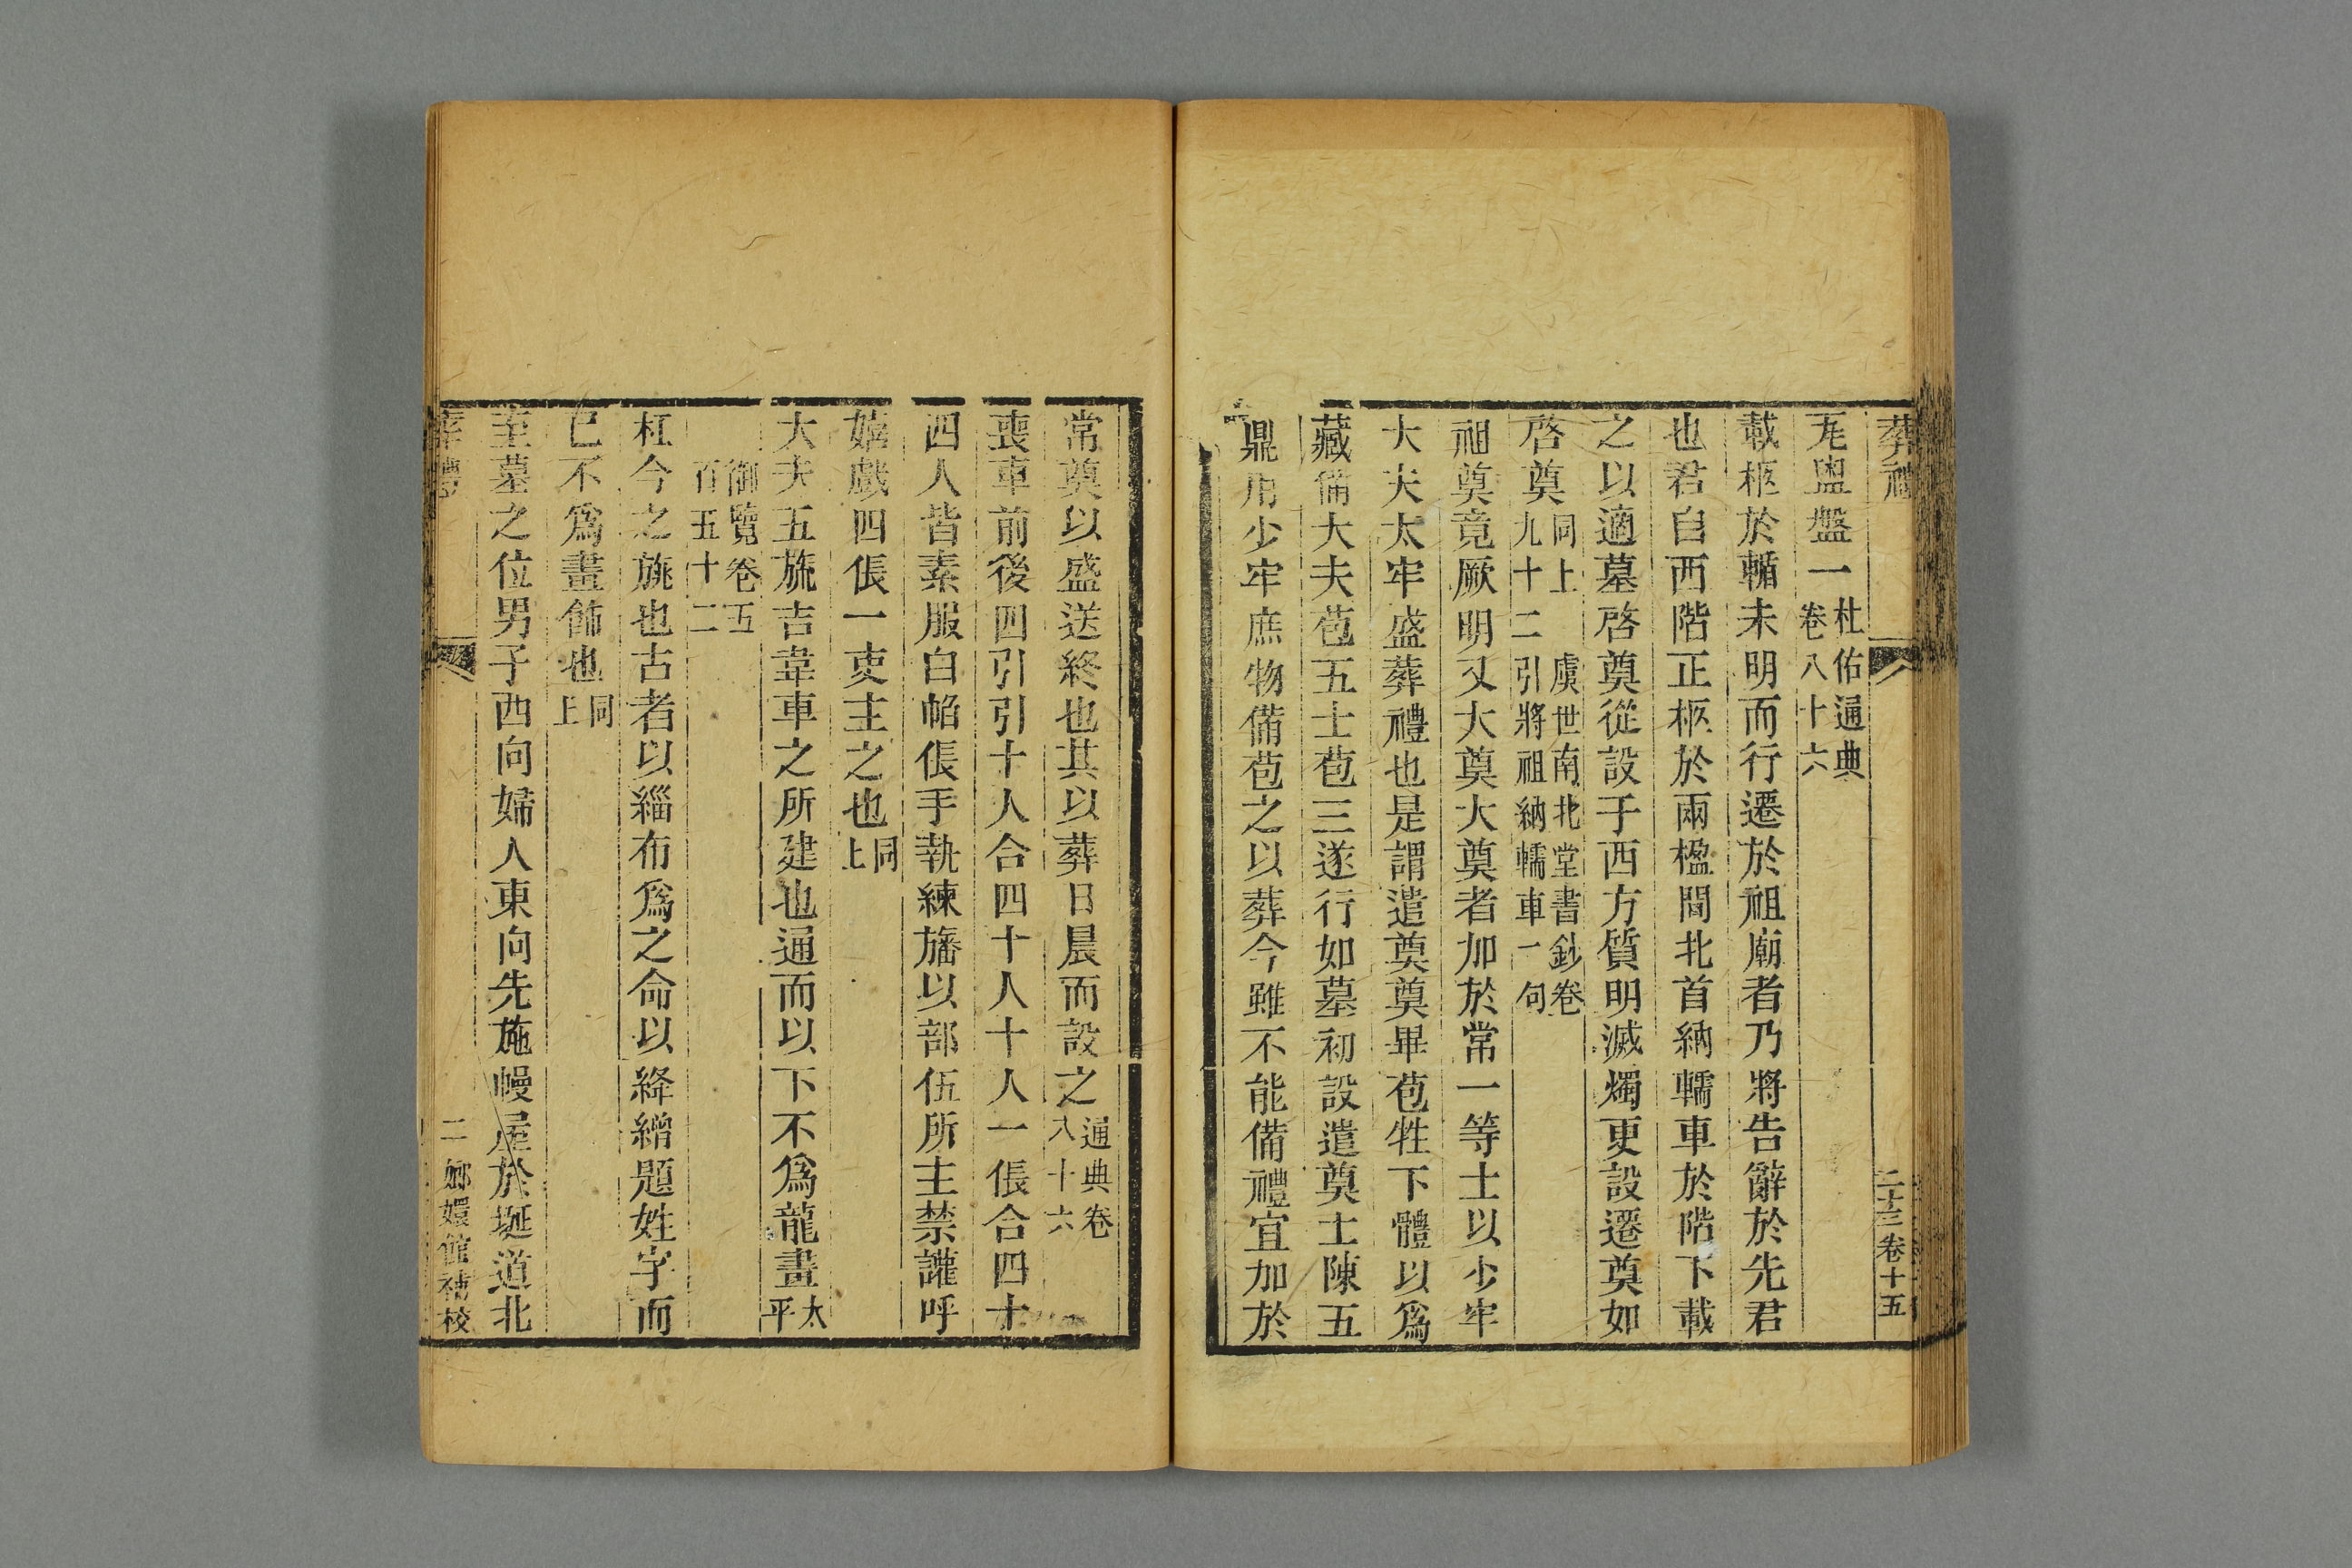 葬禮
二十三卷十五
瓦盥盤一杜佑通典卷八十六
載柩於輴未明而行遷於祖廟者乃將告辭於先君
也君自西階正柩於兩楹間北首納轜車於階下載
之以適墓啓奠從設于西方質明滅燭更設遷奠如
啓奠同上虞世南北堂書鈔卷九十二引將祖納轜車一句
祖奠竟厥明又大奠大奠者加於常一等士以少牢
大夫太牢盛葬禮也是謂遣奠奠畢苞牲下體以爲
藏備大夫苞五士苞三遂行如墓初設遣奠士陳五
鼎用少牢庶物備苞之以葬今雖不能備禮宜加於
常奠以盛送終也其以葬日晨而設之通典卷八十六
喪車前後四引引十人合四十人十人一倀合四十
四人皆素服白帢倀手執練旛以部伍所主禁讙呼
嬉戲四倀一吏主之也同上
大夫五旒吉韋車之所建也通而以下不爲龍畫太平
御覽卷五百五十二
杠今之旐也古者以緇布爲之命以絳繒題姓字而
已不爲畫飾也同上
至墓之位男子西向婦人東向先施幔屋於埏道北
二
嫏嬛館補校